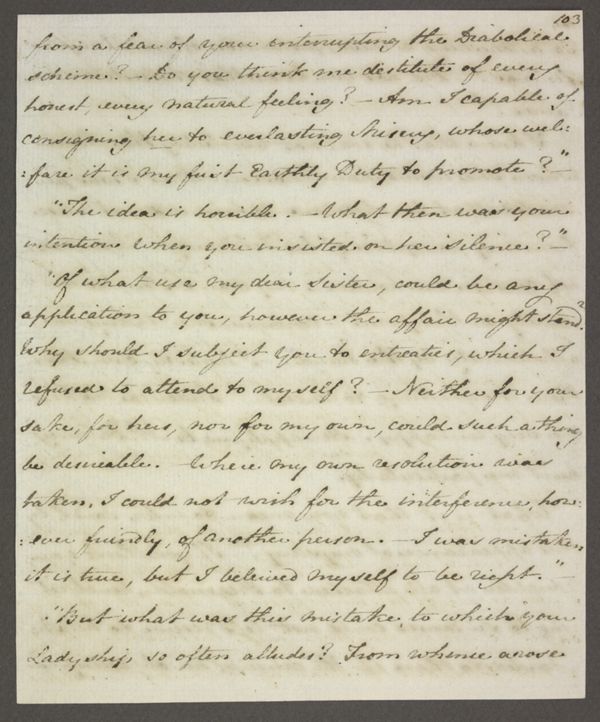 103
from a fear of your interrupting the Diabolical
scheme? — Do you think me destitute of every
honest, every natural feeling? — Am I capable of
consigning her to everlasting Misery, whose wel:
:fare it is my first Earthly Duty to promote?" —
"The idea is horrible. — What then was your
intention when you insisted on her silence?" —
"Of what use my dear Sister, could be any
application to you, however the affair might stand?
Why should I subject you to entreaties, which I
refused to attend to myself? — Neither for your
sake, for hers, nor for my own, could such a thing
be desireable. — Where my own resolution was
taken, I could not wish for the interference, how:
:ever friendly, of another person. — I was mistaken,
it is true, but I beleived myself to be right." —
"But what was this mistake, to which your
Ladyship so often alludes? From whence arose